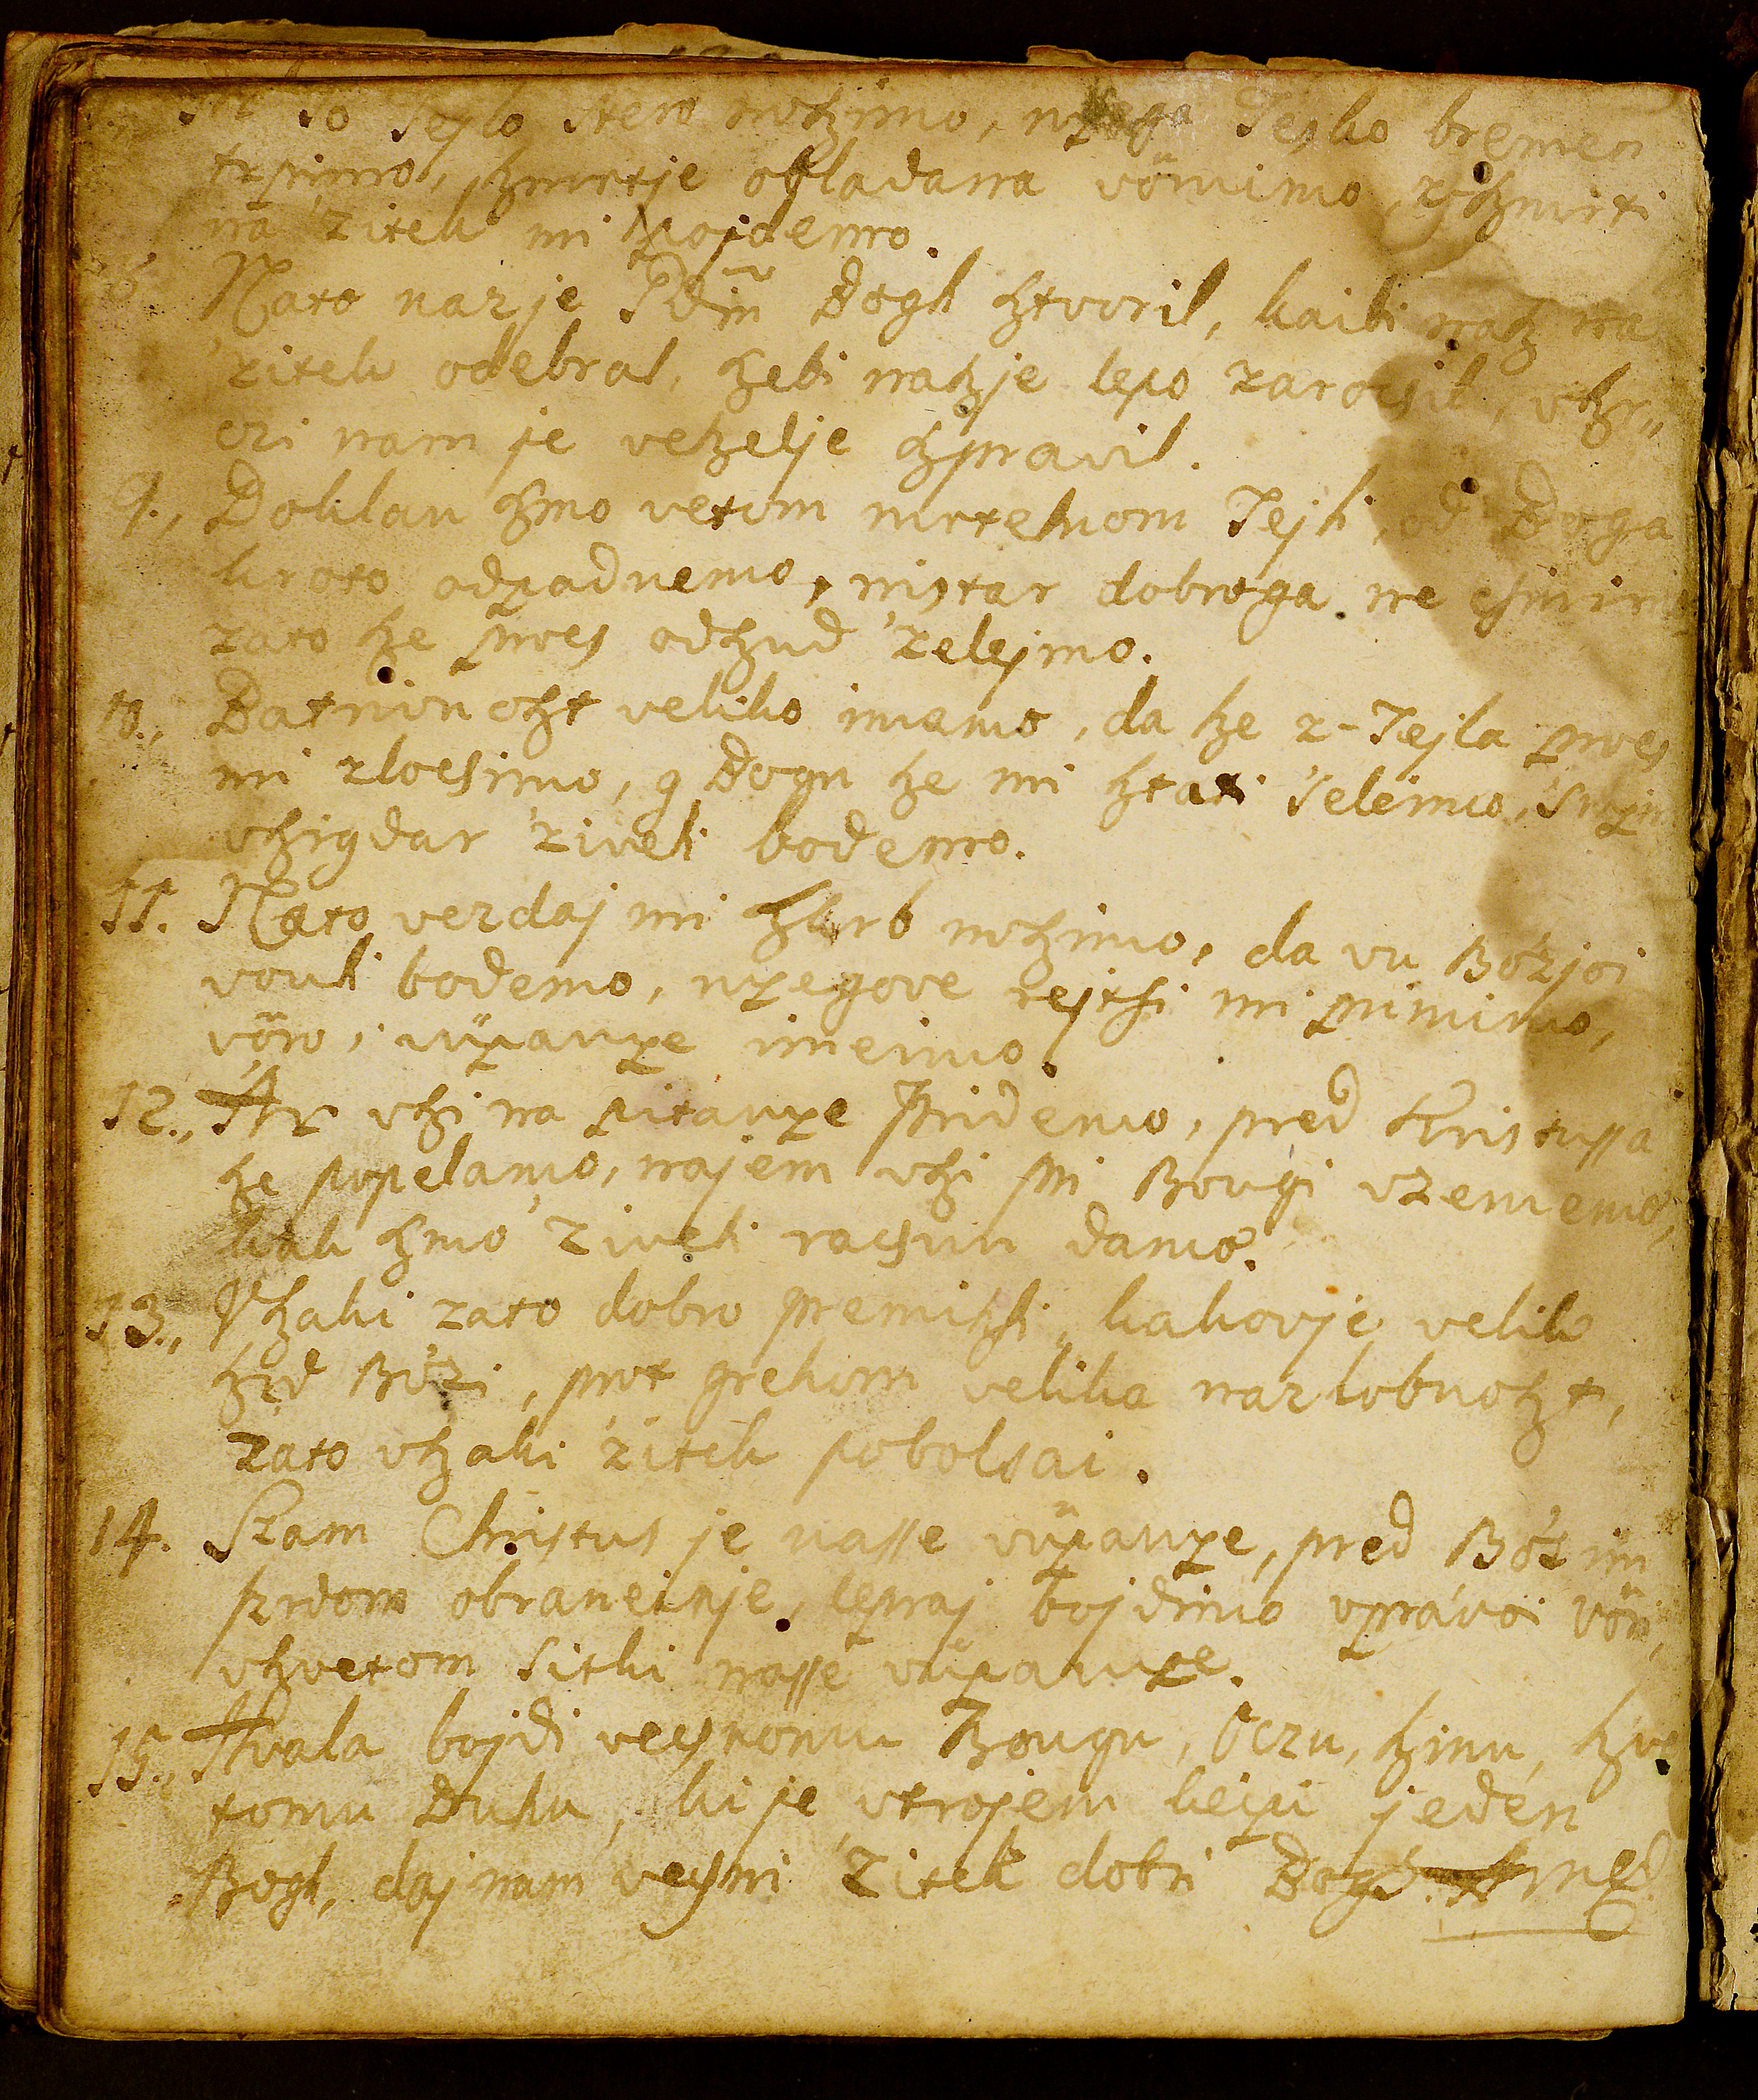 to Tejlo stero nohzimo, nyega Tesko bremen
trpimo, hzmrtje obladana vörüimo, z-hzmrti
na 'zitek mi hpojdemo.
8. Nato nazje Gdin Bogh hztvoril, kaibi nahz na
'zitek odebral, hzebi nahzje lepo zarocsil, vhzr„
czi nam je vehzelje hzpravil.
9., Doklan hzmo vetom mrtelnom Tejli, od Boga
kroto odpadnemo, nistar dobroga ne csinimo
zato hze proes odhzud 'zelejmo.
10., Batrivnohzt veliko imamo, da hze z-Tejla proes
mi zlocsimo, g Bogu hze mi hztati 'selëimo, 'snyim
vhzigdar 'ziveli bodemo.
11. Nato vezdaj mi hzkrb nohzimo, da vu Bo'zjoi
vouli bodemo, nyegove rejtsi mi primimo,
vöro, vüpanye imeimo.
12., Ar vhzi na pitanye pridemo, pred Kristussa
hze popelamo, najem vhzi pri Bougi vzememo,
kak hzmo 'ziveli racsun damo.
13., Vhzaki zato dobro premihzli, kakovje velik
hzrd Bo'zi, prot grehom velika nazlobnohzt,
zato vhzaki 'zitek pobolsai.
14. Szam Christus je nasse vüpanye, pred Bo'sim
szrdom obraneinje, lepraj bojdimo vprávoi vöri,
vhzvetom sitki nasse vüpanye.
15., Hvala bojdi vecsnomu Bougu, Oczu, hzinu, hzve
tomu Duhu, ki je vtrojem keipi jeden
Bogh, daj nam vecsni 'Zitek dobri Bogh. Amen.